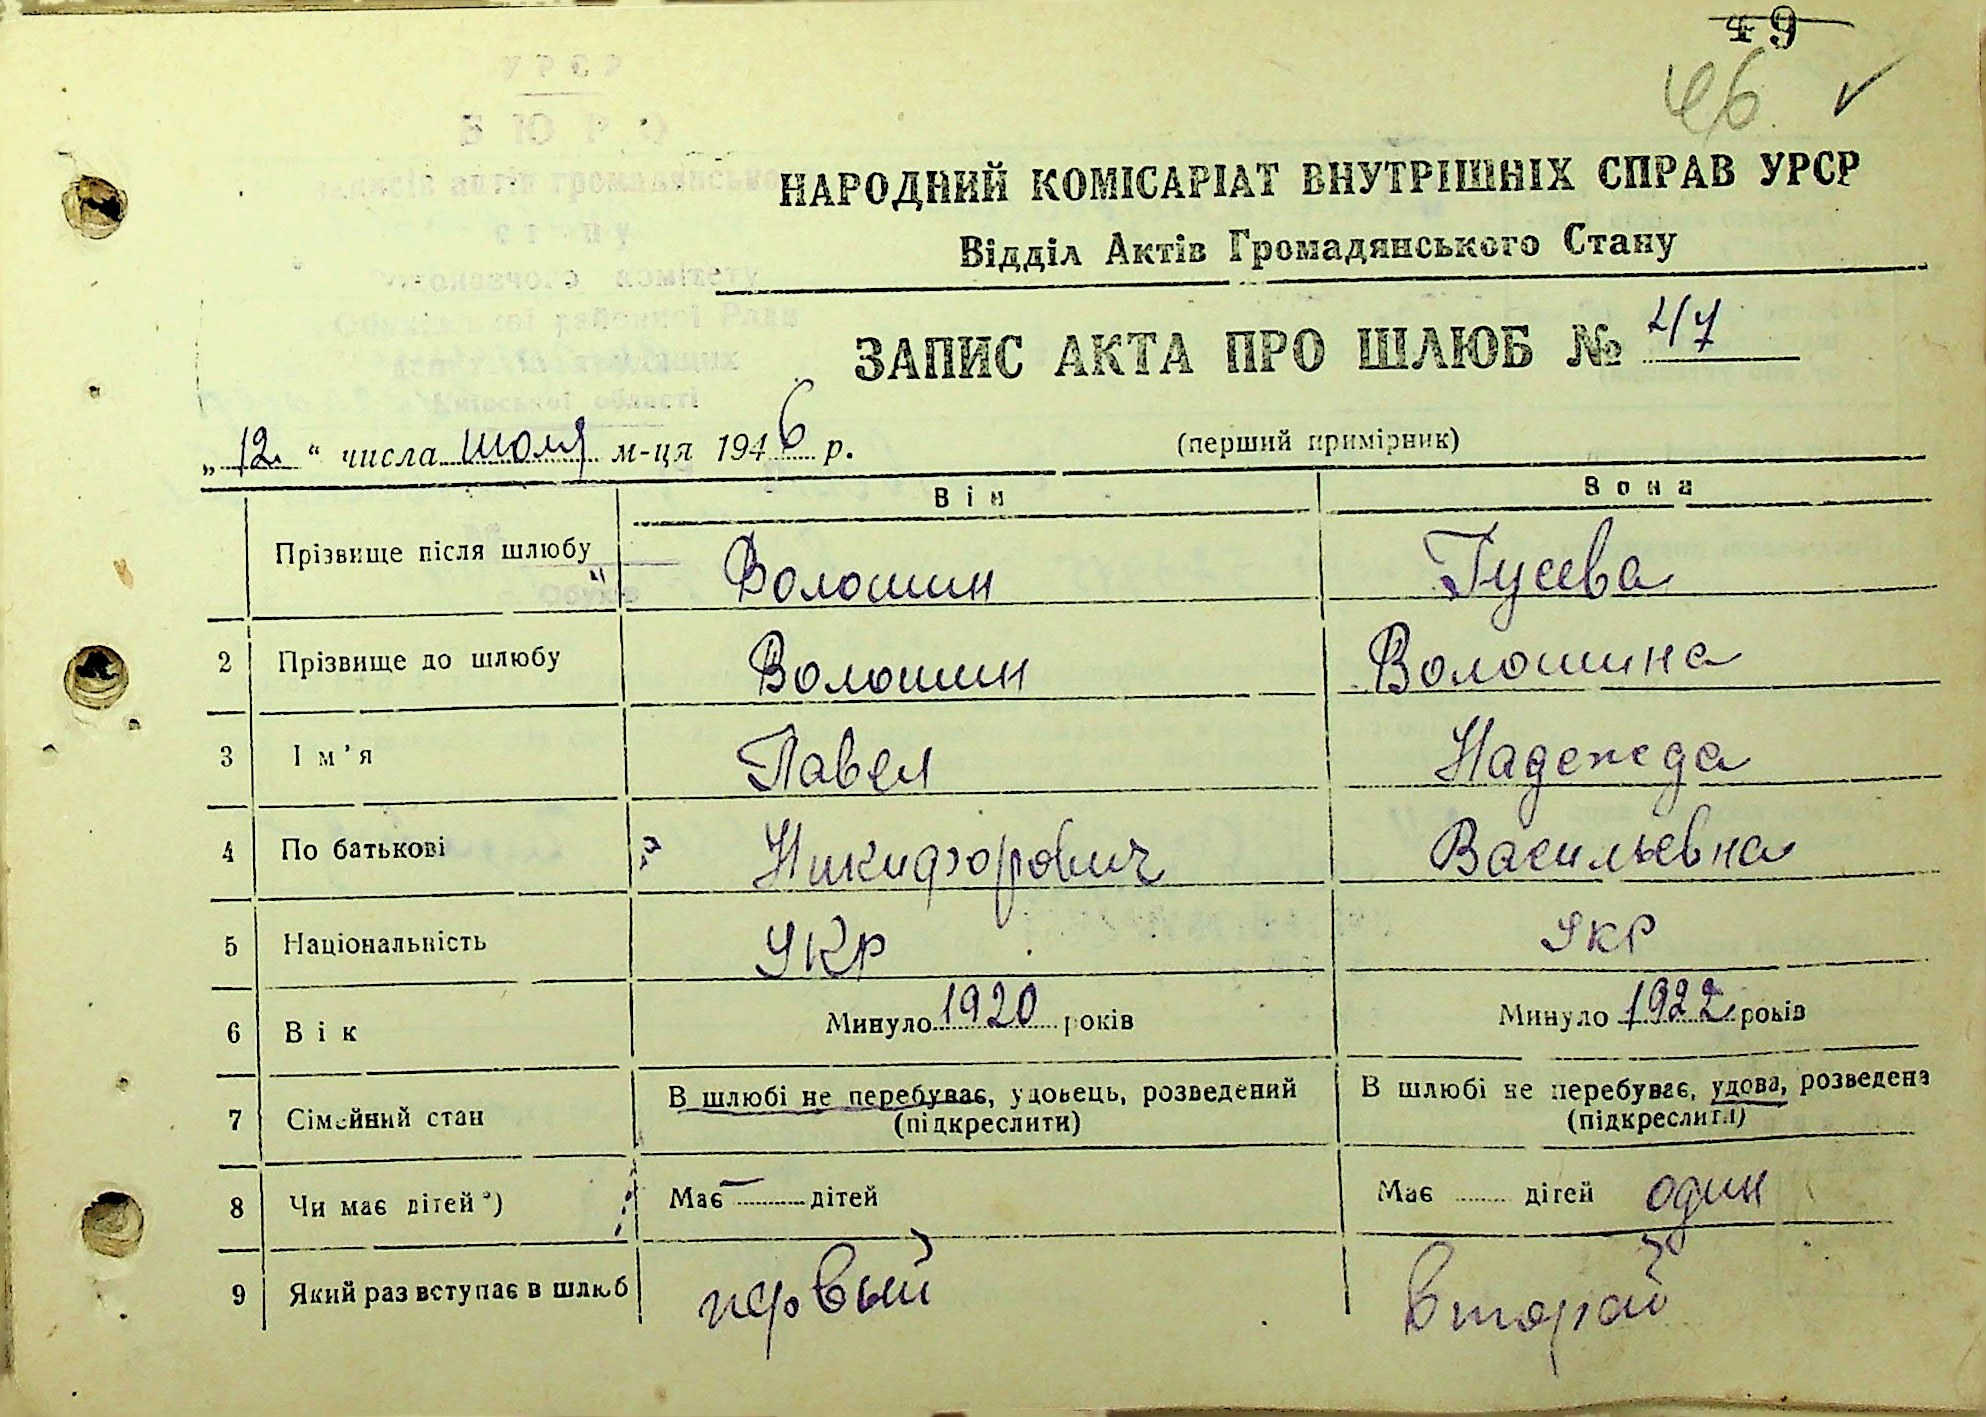 49
46
НАРОДНИЙ КОМІСАРІАТ ВНУТРІШНІХ СПРАВ УРСР
Відділ Актів Громадянського Стану
ЗАПИС АКТА ПРО ШЛЮБ № 47
„12“ числа июля м-ця 1946 р. (перший примірник)
Він Вона
Прізвище після шлюбу Волошин Гусева
2 Прізвище до шлюбу Волошин Волошина
3 Ім’я Павел Надежда
4 По батькові Никифорович Васильевна
5 Національність Укр Укр
6 Вік Минуло 1920 років Минуло 1922 років
7 Сімейний стан В шлюбі не перебуває, удовець, розведений (підкреслити) В шлюбі не перебуває, удова, розведена (підкреслити)
8 Чи має дітей *) Має — дітей Має дітей один
9 Який раз вступає в шлюб первый второй